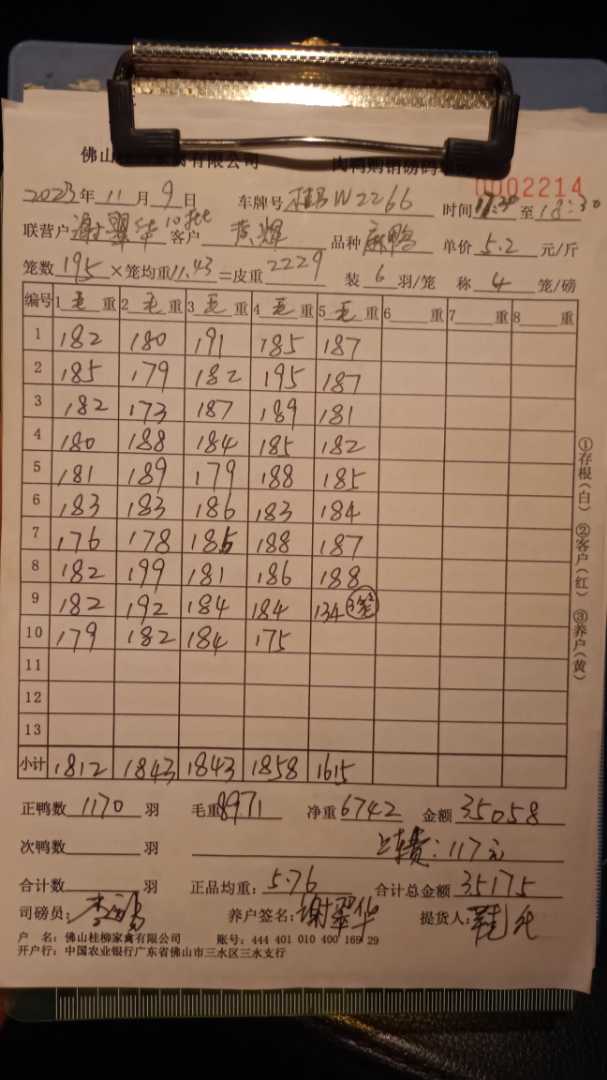 佛山桂柳家禽有限公司 肉鸭购销磅码单
0002214
2023年 11月 9日 车牌号 桂BW2266 时间 17:30 至 18:30
联营户 谢翠华 10批 客户 黄辉 品种 麻鸭 单价 5.2 元/斤
笼数 195 ×笼均重 11.43 =皮重 2229 装 6 羽/笼 称 4 笼/磅
编号 1 毛 重 2 毛 重 3 毛 重 4 毛 重 5 毛 重 6 重 7 重 8 重
1 182 180 191 185 187
2 185 179 182 195 187
3 182 173 187 189 181
4 180 188 184 185 182
5 181 189 179 188 185
6 183 183 186 183 184
7 176 178 185 188 187
8 182 199 181 186 188
9 182 192 184 184 134 3笼
10 179 182 184 175
11
12
13
小计 1812 1843 1843 1858 1615
正鸭数 1170 羽 毛重 8971 净重 6742 金额 35058
次鸭数 羽 上车费:117元
合计数 羽 正品均重: 5.76 合计总金额 35175
司磅员: 养户签名: 谢翠华 提货人:
户 名: 佛山桂柳家禽有限公司 账号: 444 401 010 400 169 29
开户行: 中国农业银行广东省佛山市三水区三水支行
①存根(白) ②客户(红) ③养户(黄)